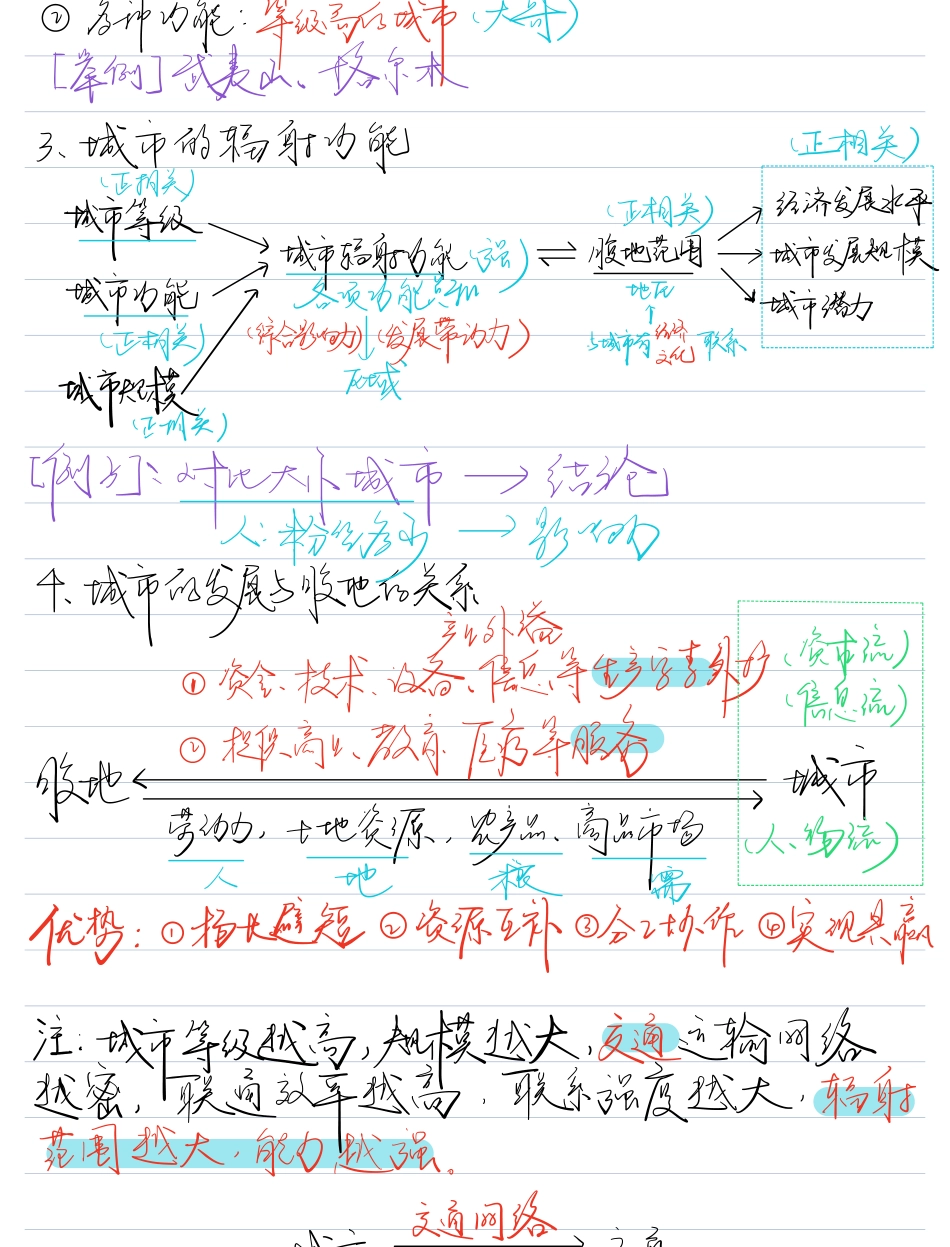 ② 各种功能：等级高的城市（大哥）
[举例] 武夷山、格尔木
3、城市的辐射功能
（正相关）
（正相关）
城市等级
（正相关）
经济发展水平
城市辐射功能（强） ⇌ 腹地范围
城市发展规模
城市功能
各项功能总和
地区
城市潜力
（正相关）
（综合影响力）↓（发展带动力）
↑
与城市有经济文化联系
区域
城市规模
（正相关）
[例子]：对比大小城市 → 结论
人：粉丝多少 → 影响力
4、城市的发展与腹地的关系
产业外溢
① 资金、技术、设备、信息等生产要素外扩
（资本流）
（信息流）
② 提供商业、教育、医疗等服务
腹地
城市
劳动力，土地资源，农产品、商品市场
（人、物流）
人 地 粮 需
优势：①扬长避短 ②资源互补 ③分工协作 ④实现共赢
注：城市等级越高，规模越大，交通运输网络
越密，联通效率越高，联系强度越大，辐射
范围越大，能力越强。
交通网络
城市